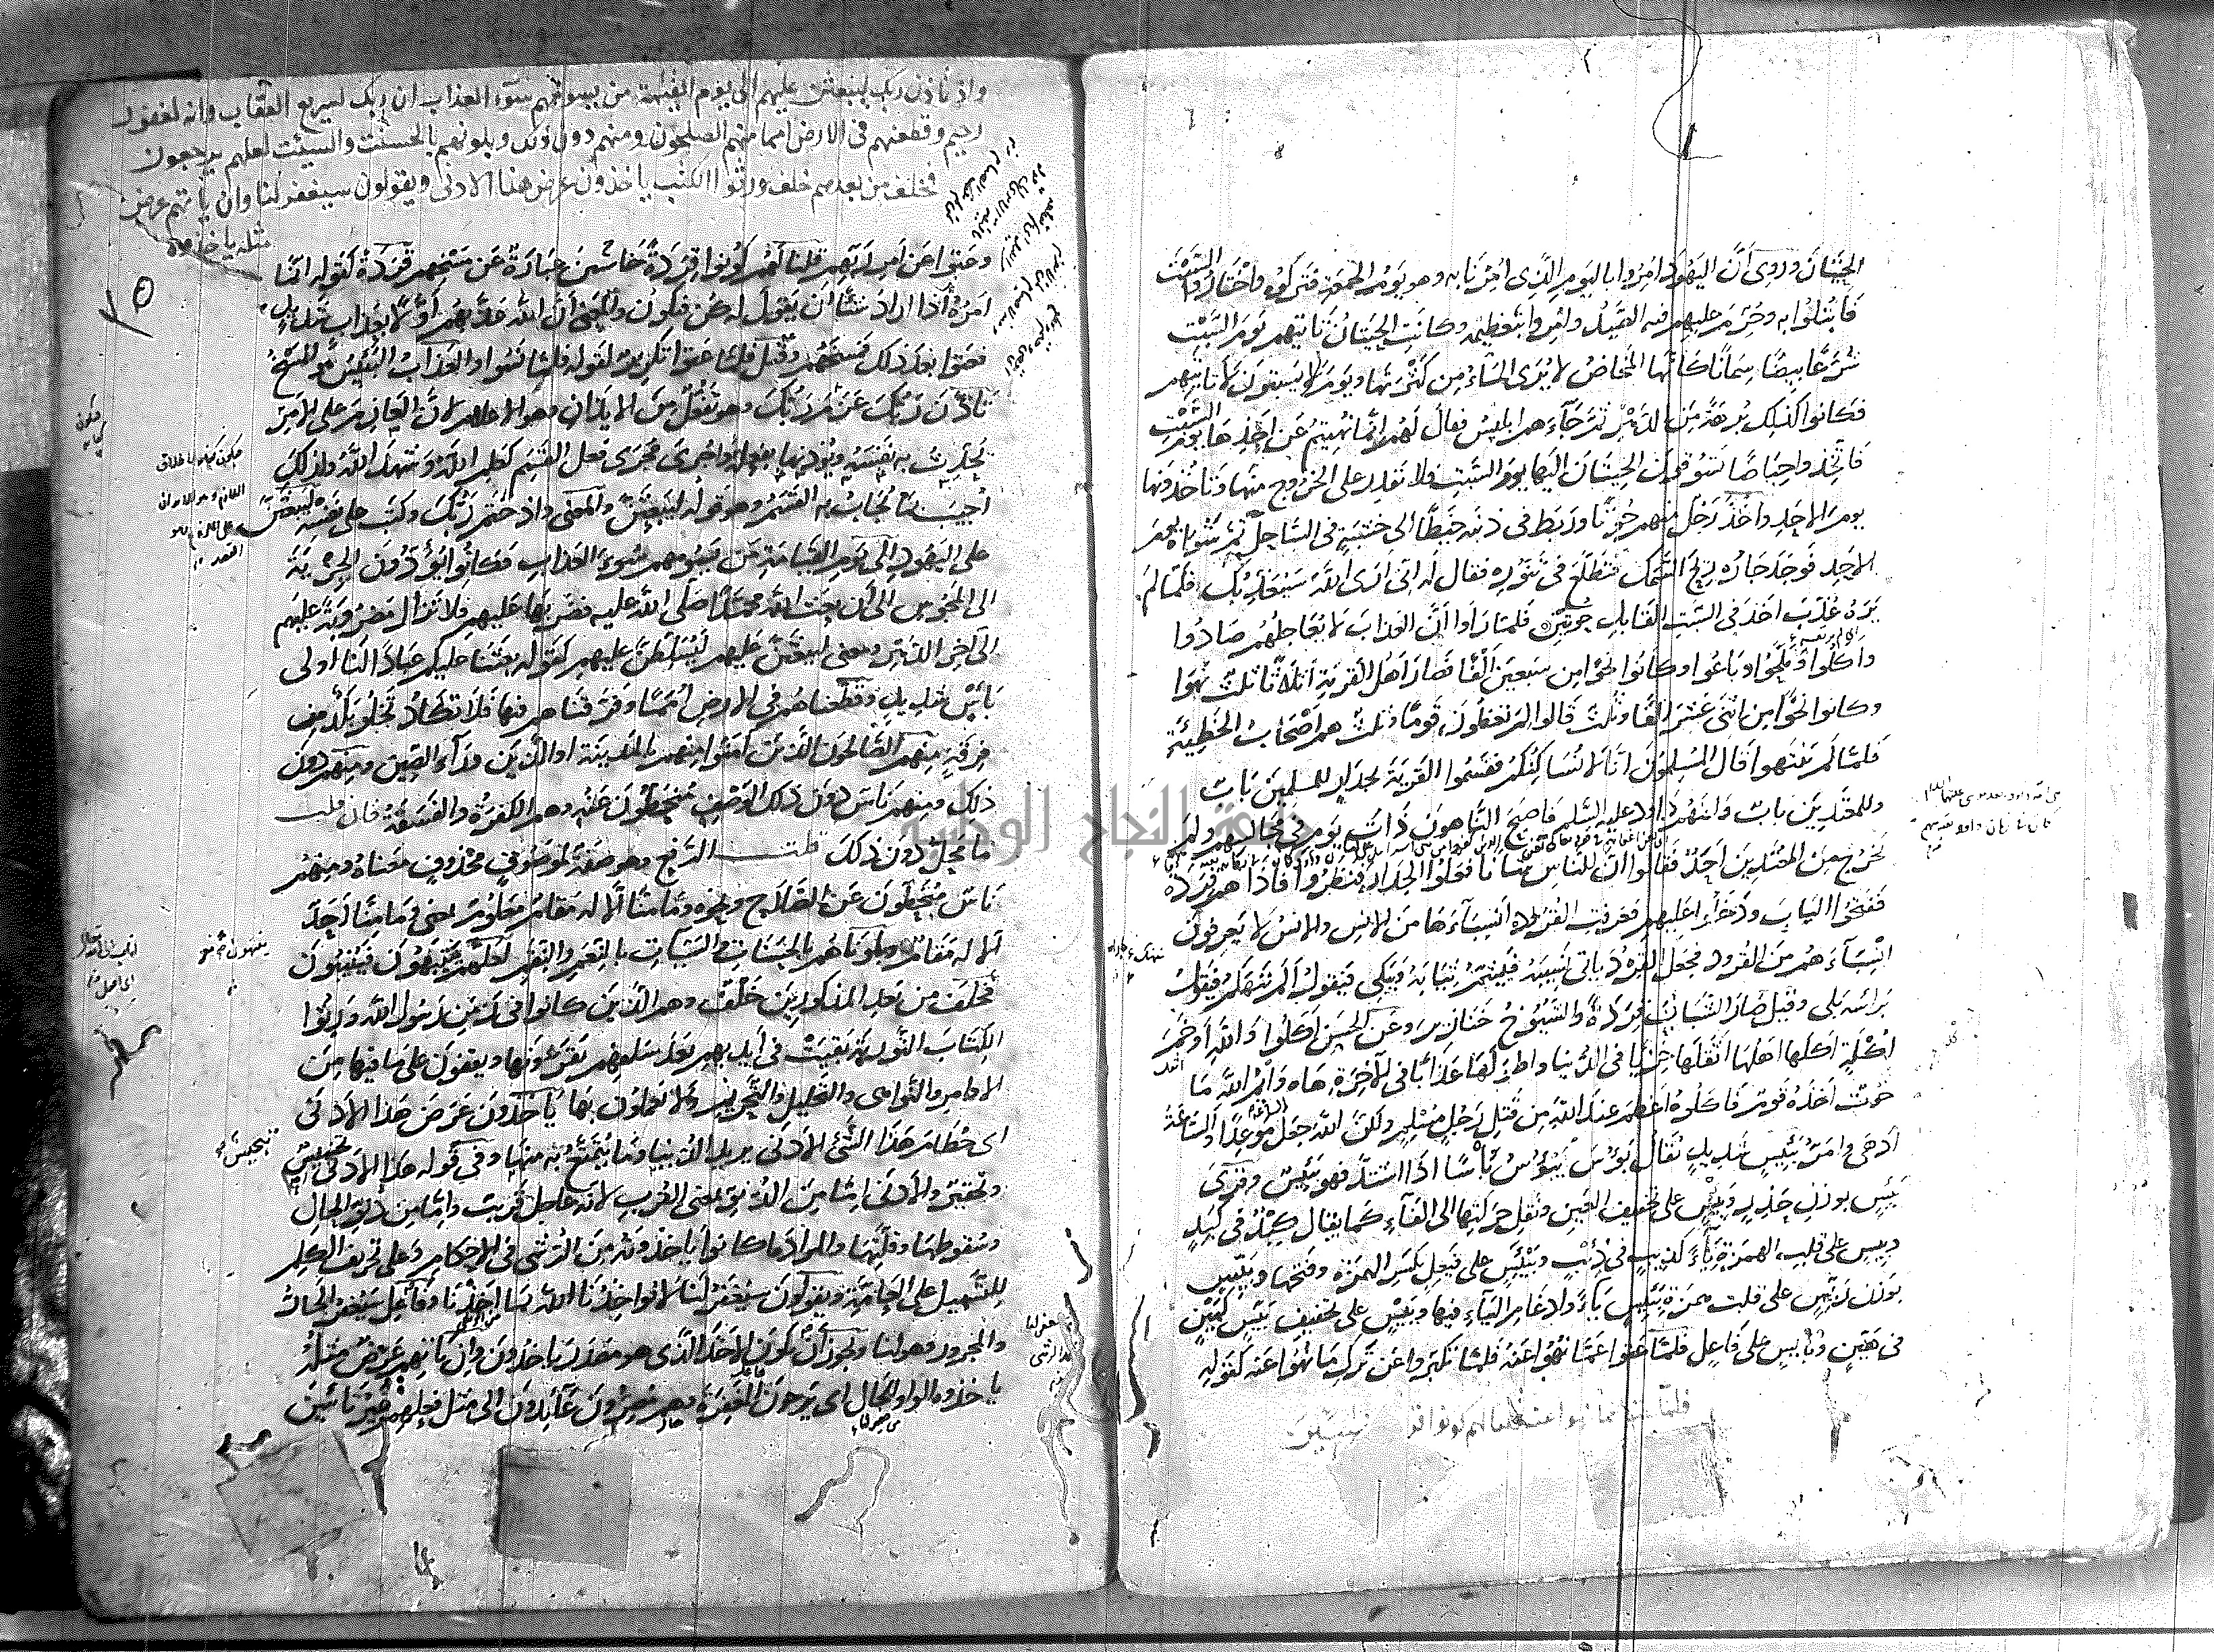 الحيتان وروى أن اليهود أمروا باليوم الذي أمرنا به وهو يوم الجمعة فتركوه واختاروا السبت
فابتلوا به وحرم عليهم فيه الصيد وأمروا بتعظيمه وكانت الحيتان تأتيهم يوم السبت
شرعا بيضا سمانا كأنها المخاض لا يرى الماء من كثرتها ويوم لا يسبتون لا تأتيهم
فكانوا كذلك برهة من الدهر ثم جاءهم ابليس فقال لهم إنما نهيتم عن أخذها يوم السبت
فاتخذوا حياضا تسوقون الحيتان اليها يوم السبت فلا تقدر على الخروج منها وتأخذونها
يوم الأحد وأخذ رجل منهم حوتا وربط في ذنبه خيطا الى خشبة في الساحل ثم شواه يوم
الأحد فوجد جاره ريح السمك فتطلع في تنوره فقال له إني أرى الله سيعذبك فلما لم
يره عذب أخذ في السبت القابل حوتين فلما رأوا أن العذاب لا يعاجلهم صادوا
وأكلوا وملحوا وباعوا وكانوا نحوا من سبعين ألفا فصار أهل القرية أثلاثا ثلث نهوا
وكانوا نحوا من اثنى عشر ألفا وثلث قالوا لم تعظون قوما وثلث هم أصحاب الخطيئة
فلما لم ينتهوا قال المسلمون انا لا نساكنكم فقسموا القرية بجدار للمسلمين باب
وللمعتدين باب ولعنهم داود عليه السلم فاصبح الناهون ذات يوم في مجالسهم ولم
يخرج من المعتدين أحد فقالوا ان للناس شأنا فعلوا الجدار فنظروا فاذا هم قردة
ففتحوا الباب ودخلوا عليهم فعرفت القردة أنسباءها من الانس والانس لا يعرفون
أنسباءهم من القرود فجعل القرد يأتي نسيبه فيشم ثيابه ويبكي فيقول ألم ننهكم فيقول
برأسه بلى وقيل صار الشبان قردة والشيوخ خنازير وعن الحسن أكلوا والله أوخم
أكلة أكلها أهلها أثقلها خزيا في الدنيا وأطولها عذابا في الآخرة هاه وأيم الله ما
حوت أخذه قوم فأكلوه أعظم عند الله من قتل رجل مسلم ولكن الله جعل موعدا والساعة
أدهى وأمر بئيس شديد يقال بؤس يبؤس بأسا اذا اشتد فهو بئيس وقرئ
بئس بوزن حذر وبئس على تخفيف العين ونقل حركتها الى الفاء كما يقال كبد في كبد
وبيس على قلب الهمزة ياء كذيب في ذئب وبيئس على فيعل بكسر الهمزة وفتحها وبيس
بوزن ريس على قلب همزة بيئس ياء وادغام الياء فيها وبيس على تخفيف بيس كهين
في هين وبائس على فاعل فلما عتوا عما نهوا عنه فلما تكبروا عن ترك ما نهوا عنه كقوله
واذ تأذن ربك ليبعثن عليهم الى يوم القيمة من يسومهم سوء العذاب ان ربك لسريع العقاب وانه لغفور
رحيم وقطعنهم في الارض امما منهم الصلحون ومنهم دون ذلك وبلونهم بالحسنت والسيئت لعلهم يرجعون
فخلف من بعدهم خلف ورثوا الكتب ياخذون عرض هذا الادنى ويقولون سيغفر لنا وان يأتهم عرض
مثله ياخذوه
٧٥
وعتوا عن أمر ربهم قلنا لهم كونوا قردة خاسئين عبارة عن مسخهم قردة كقوله انما
أمره اذا أراد شيئا أن يقول له كن فيكون والمعنى أن الله عذبهم أولا بعذاب شديد
فعتوا بعد ذلك فمسخهم وقيل فلما عتوا تكرير لقوله فلما نسوا والعذاب البئيس هو المسخ
تأذن ربك عزم ربك وهو تفعل من الايذان وهو الاعلام لأن العازم على الامر
يحدث به نفسه ويؤذنها بفعله وأجرى مجرى فعل القسم كعلم الله وشهد الله ولذلك
أجيب بما يجاب به القسم وهو قوله ليبعثن والمعنى واذ حتم ربك وكتب على نفسه ليبعثن
على اليهود الى يوم القيامة من يسومهم سوء العذاب فكانوا يؤدون الجزية
الى المجوس الى أن بعث الله محمدا صلى الله عليه فضربها عليهم فلا تزال مضروبة عليهم
الى آخر الدهر ومعنى ليبعثن عليهم ليسلطن عليهم كقوله بعثنا عليكم عبادا لنا أولى
بأس شديد وقطعناهم في الارض أمما وفرقناهم فيها فلا تكاد تخلو بلد من
فرقة منهم الصالحون الذين آمنوا منهم بالمدينة أو الذين وراء الصين ومنهم دون
ذلك ومنهم ناس دون ذلك الوصف منحطون عنه وهم الكفرة والفسقة فان قلت
ما محل دون ذلك قلت الرفع وهو صفة لموصوف محذوف معناه ومنهم
ناس منحطون عن الصلاح ونحوه وما منا الا له مقام معلوم بمعنى وما منا أحد
الا له مقام وبلوناهم بالحسنات والسيئات بالنعم والنقم لعلهم ينتهون فينيبون
فخلف من بعد المذكورين خلف وهم الذين كانوا في زمن رسول الله ورثوا
الكتاب التوراة بقيت في أيديهم بعد سلفهم يقرءونها ويقفون على ما فيها من
الاوامر والنواهي والتحليل والتحريم ولا يعملون بها يأخذون عرض هذا الأدنى
أي حطام هذا الشئ الأدنى يريد الدنيا وما يتمتع به منها وفي قوله هذا الأدنى تخسيس
وتحقير والأدنى إما من الدنو بمعنى القرب لانه عاجل قريب وإما من دنو الحال
وسقوطها وقلتها والمراد ما كانوا يأخذونه من الرشى في الاحكام وعلى تحريف الكلم
للتسهيل على العامة ويقولون سيغفر لنا لا يؤاخذنا الله بما أخذنا وفاعل سيغفر الجار
والمجرور وهو لنا ويجوز أن يكون الأخذ الذي هو مصدر يأخذون وان يأتهم عرض مثله
يأخذوه الواو للحال أي يرجون المغفرة وهم مصرون عائدون الى مثل فعلهم غير تائبين